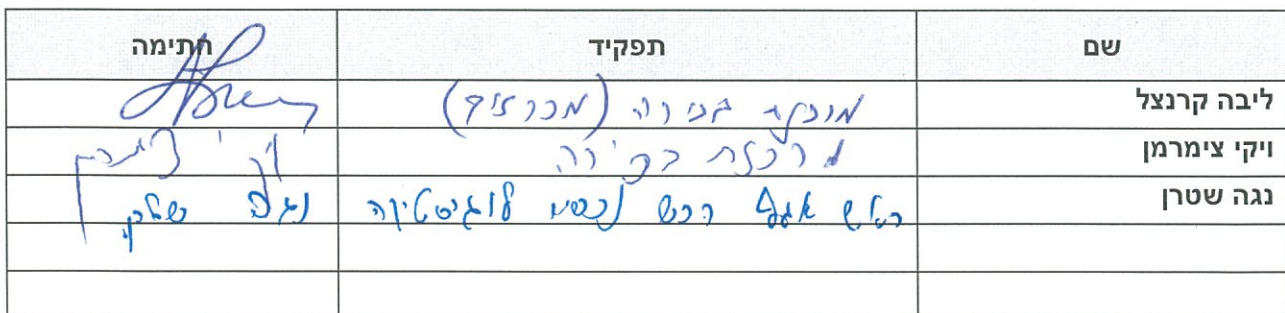 שם תפקיד חתימה
ליבה קרנצל בכירה (מכרזים)
ויקי צימרמן מרכזת בכירה ויקי צימרמן
נגה שטרן ראש אגף רכש נכסים לוגיסטיקה נגה שטרן